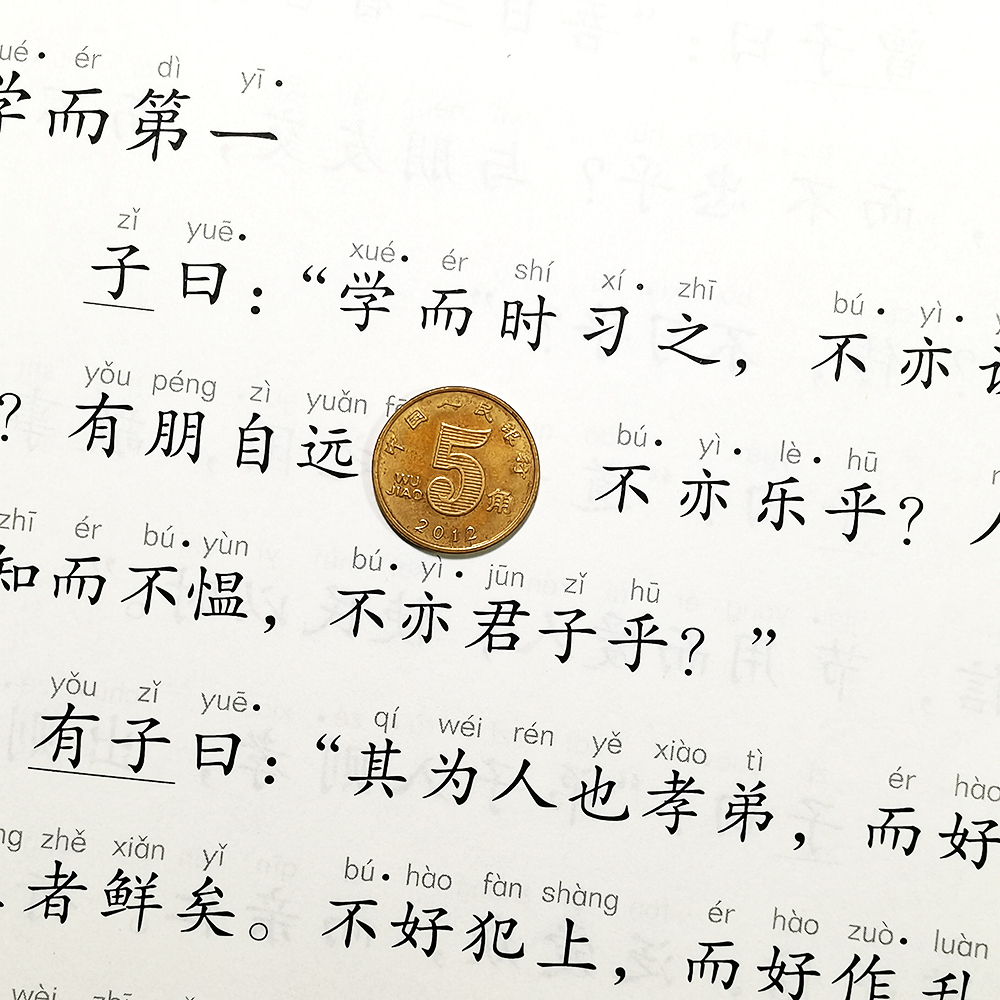 ué· ér dì yī·
学而第一
zǐ yuē· xué· ér shí xí· zhī bú· yì·
子曰：“学而时习之，不亦
yǒu péng zì yuǎn bú· yì· lè· hū
？有朋自远 不亦乐乎？人
zhī ér bú· yùn bú· yì· jūn zǐ hū
知而不愠，不亦君子乎？”
yǒu zǐ yuē· qí wéi rén yě xiào tì ér hào
有子曰：“其为人也孝弟，而好
zhě xiǎn yǐ bú· hào fàn shàng ér hào zuò· luàn
者鲜矣。不好犯上，而好作乱
wèi zhī
中国人民银行
5
WU JIAO 角
2012